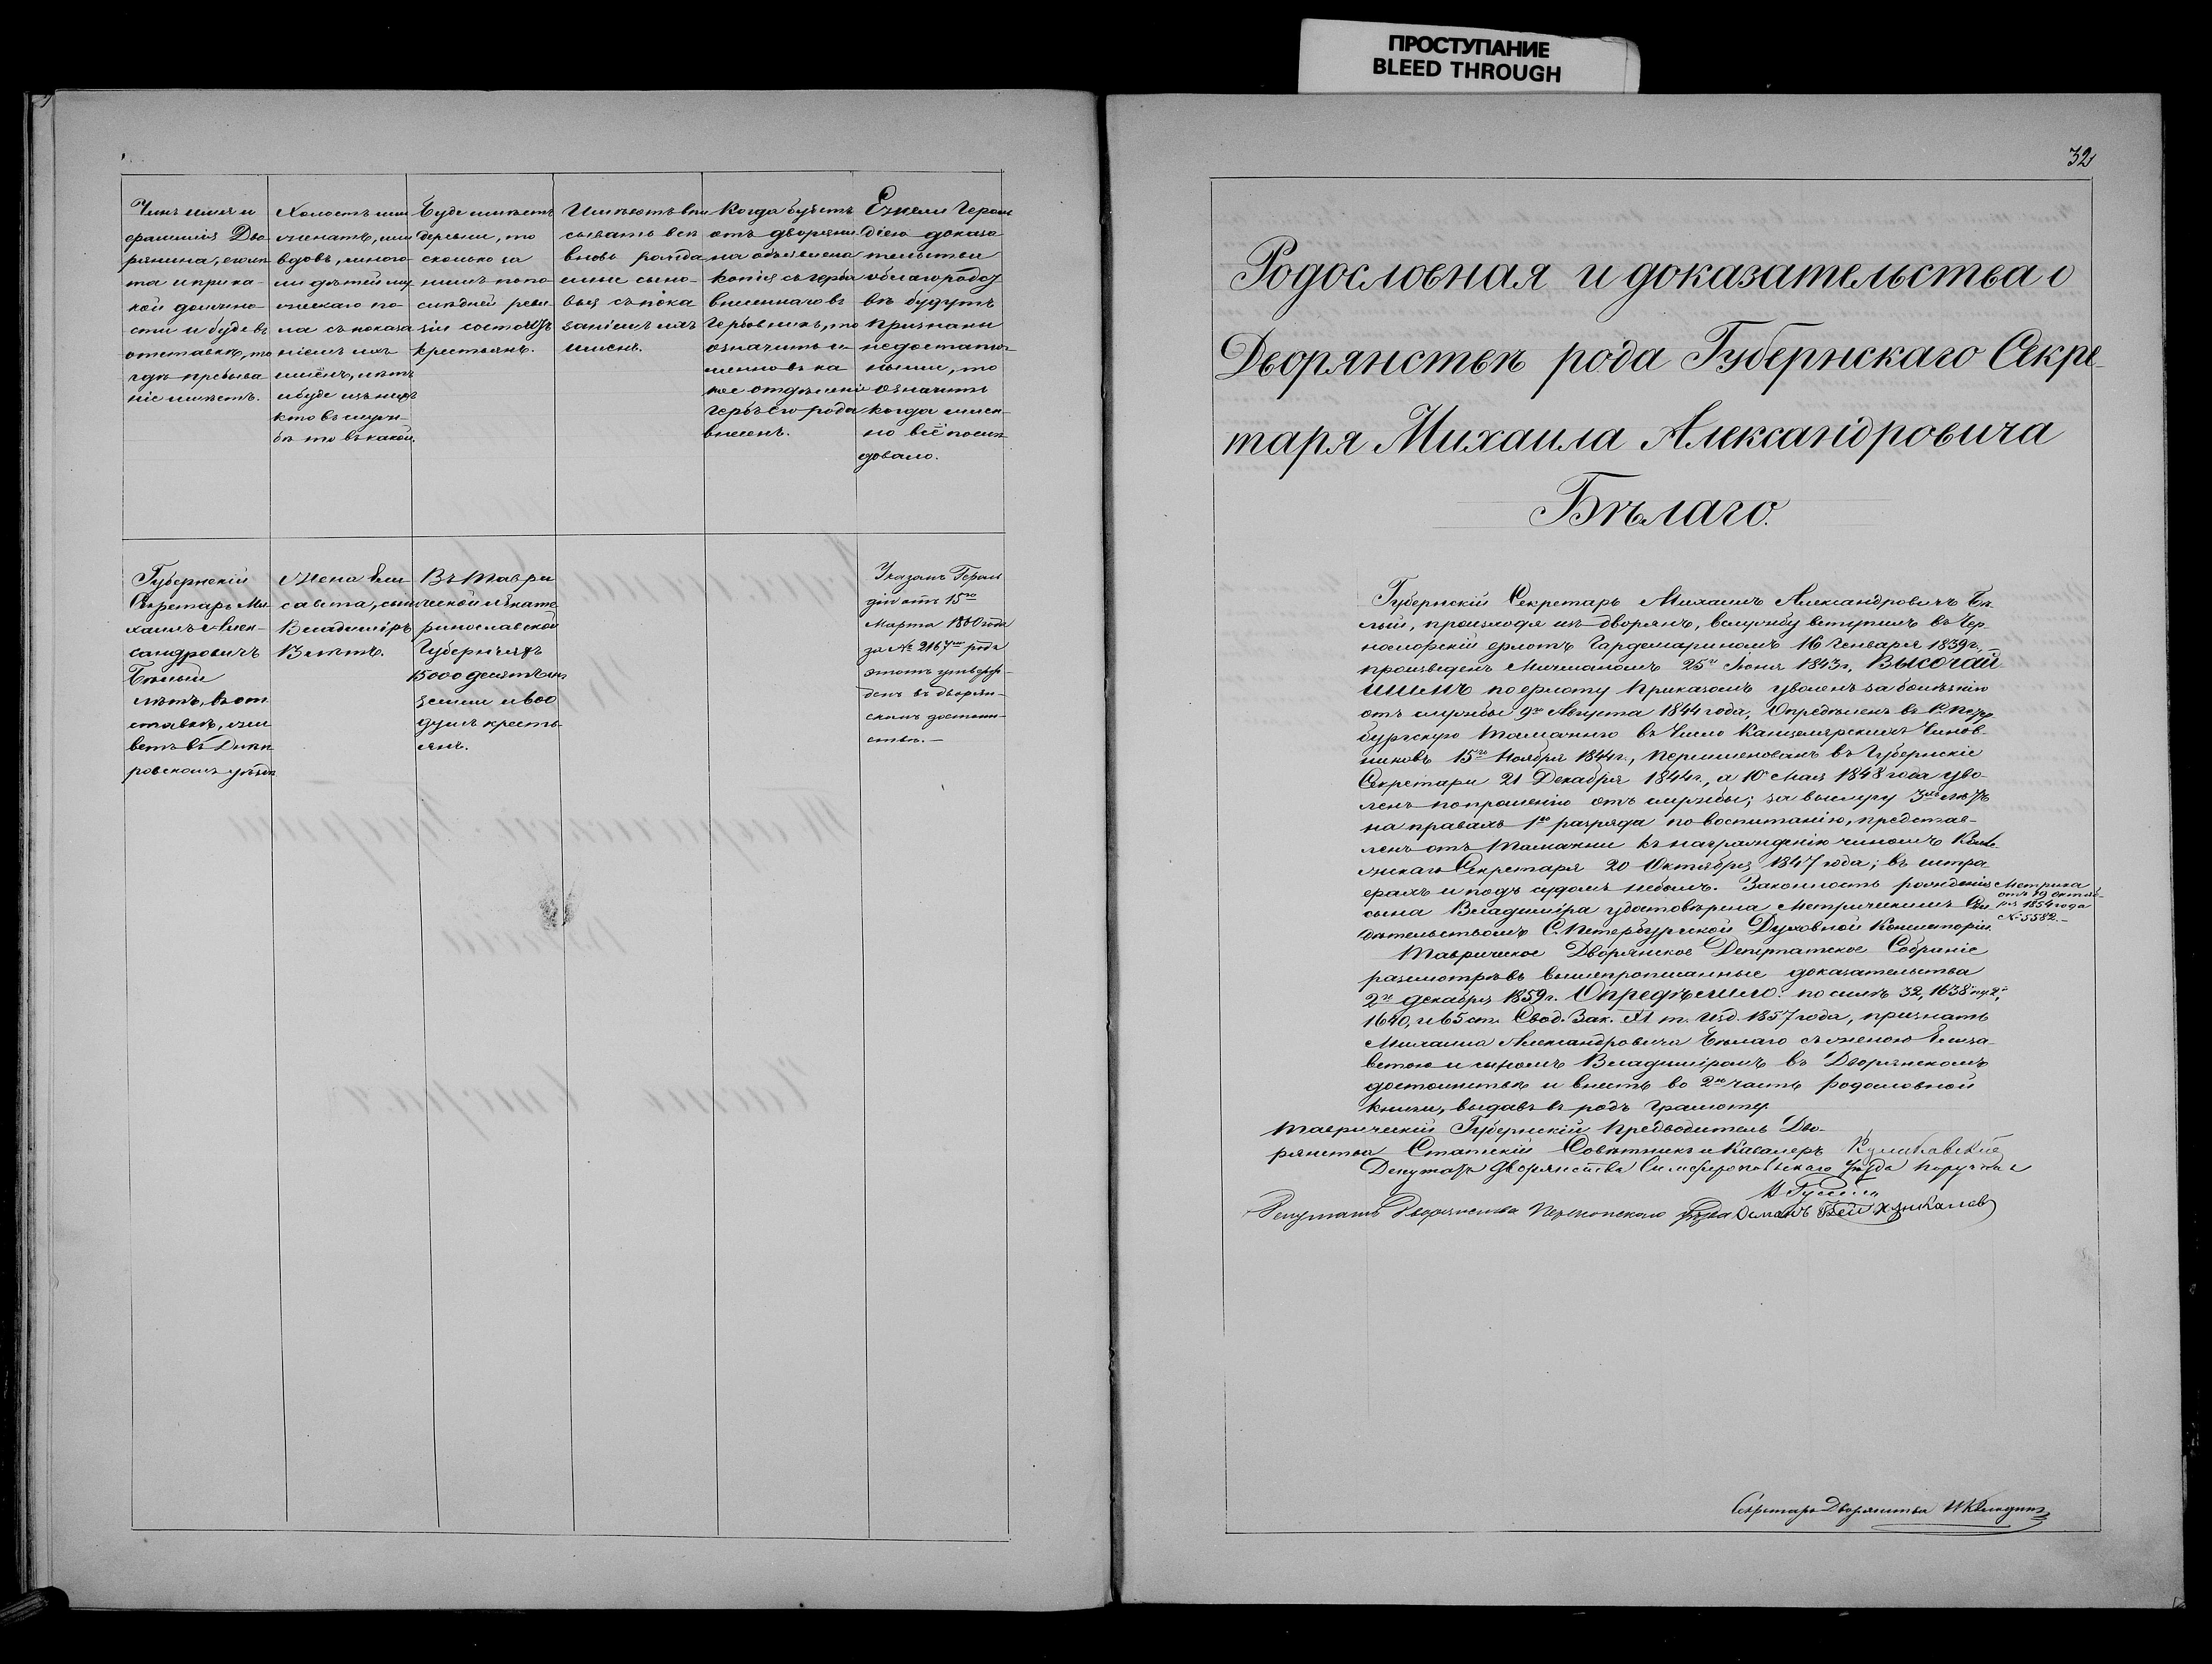 ПРОСТУПАНИЕ
BLEED THROUGH
Чинъ имя и
фамилія Дво-
рянина, его лѣ-
та и при ка-
кой должно-
сти и буде въ
отставкѣ, то
гдѣ пребыва-
ніе имѣетъ.
Холостъ или
женатъ, или
вдовъ, много-
ли дѣтей му-
жескаго по-
ла съ показа-
ніемъ ихъ
имёнъ, лѣтъ
и буде изъ нихъ
кто въ служ-
бѣ то въ какой.
Буде имѣетъ
деревни, то
сколько за
нимъ по по-
слѣдней реви-
зіи состоитъ
крестьянъ.
Имѣютъ впи-
сывать всѣ
вновь рожда-
емые сыно-
вья съ пока
заніемъ ихъ
именъ.
Когда будетъ
отъ дворяни-
на объявлена
копія съ герба
внесеннаго въ
Гербовникъ, то
означить и-
менно въ ка
кое отдѣленіе
гербъ его рода
внесенъ.
Ежели Героль
діею доказа
тельства
о благородст
вѣ будутъ
признаны
недостаточ-
ными, то
означить
когда имен-
но всё послѣ-
довало.
Губернскій
Секретарь Ми-
хаилъ Алек-
сандровичъ
Бѣлый
лѣтъ, въ от
ставкѣ, жи
ветъ въ Днѣп
ровскомъ уѣздѣ
Жена Ели
савета, сынъ
Владиміръ
8 лѣтъ.
Въ Таври
ческой и Екате
ринославской
Губерніяхъ
15000 десятинъ
земли и 800
душъ кресть-
янъ.
Указомъ Героль
діи отъ 15го
Марта 1860 года
за № 2167мъ рода
этотъ утверж-
денъ въ дворян-
скомъ достоин-
ствѣ.—
32
Родословная и доказательства о
Дворянствѣ рода Губернскаго Секре-
таря Михаила Александровича
Бѣлаго.
Губернскій Секретарь Михаилъ Александровичъ Бѣ-
лый, происходя изъ дворянъ, въ службу вступилъ въ Чер-
номорскій флотъ Гардемариномъ 16 Генваря 1839 г.,
произведенъ Мичманомъ 25го Іюня 1843 г, Высочай-
шимъ по флоту Приказомъ уволенъ за болѣзнію
отъ службы 9го Августа 1844 года, Опредѣленъ въ С. Петер
бургскую Таможню въ Число Канцелярскихъ Чинов-
никовъ 15го Ноября 1844 г., переименованъ въ Губернскіе
Секретари 21 Декабря 1844 г., а 10го Мая 1848 года уво-
ленъ по прошенію отъ службы; за выслугу 3хъ лѣтъ
на правахъ 1го разряда по воспитанію, представ-
ленъ отъ Таможни къ награжденію чиномъ Колле
жскаго Секретаря 20 Октября 1847 года; въ штра
фахъ и подъ судомъ небылъ. Законность рожденія
сына Владиміра удостовѣрена Метрическимъ Сви
дѣтельствомъ С. Петербургской Духовной Консисторіи.
Метрика
отъ 19 октяб-
ря 1854 года
№ 5582.—
Таврическое Дворянское Депутатское Собраніе
разсмотрѣвъ вышепрописанные доказательства
2го декабря 1859 г. Опредѣлило: по силѣ 32, 1638 пу. 2й,
1640, и 65 ст. Свод. Зак. IX т. Изд. 1857 года, признать
Михаила Александровича Бѣлаго съ женою Елиза-
ветою и сыномъ Владиміромъ въ Дворянскомъ
достоинствѣ и внесть во 2ю часть родословной
книги, выдавъ въ родъ грамоту.
Таврическій Губернскій Предводитель Дво-
рянства Статскій Совѣтникъ и Кавалеръ
Депутатъ Дворянства Симферопольскаго Уѣзда Поручикъ
Депутатъ Дворянства Перекопскаго уѣзда Османъ Бей
Секретарь Дворянства